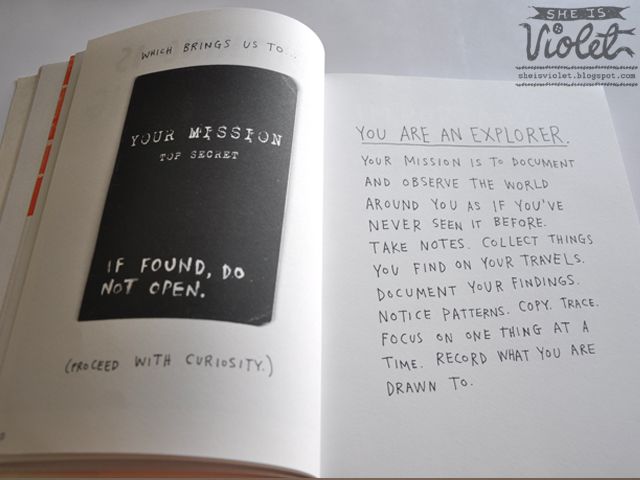 SHE IS
Violet
sheisviolet.blogspot.com
WHICH BRINGS US TO...
YOUR MISSION
TOP SECRET
IF FOUND, DO
NOT OPEN.
(PROCEED WITH CURIOSITY.)
YOU ARE AN EXPLORER.
YOUR MISSION IS TO DOCUMENT
AND OBSERVE THE WORLD
AROUND YOU AS IF YOU'VE
NEVER SEEN IT BEFORE.
TAKE NOTES. COLLECT THINGS
YOU FIND ON YOUR TRAVELS.
DOCUMENT YOUR FINDINGS.
NOTICE PATTERNS. COPY. TRACE.
FOCUS ON ONE THING AT A
TIME. RECORD WHAT YOU ARE
DRAWN TO.